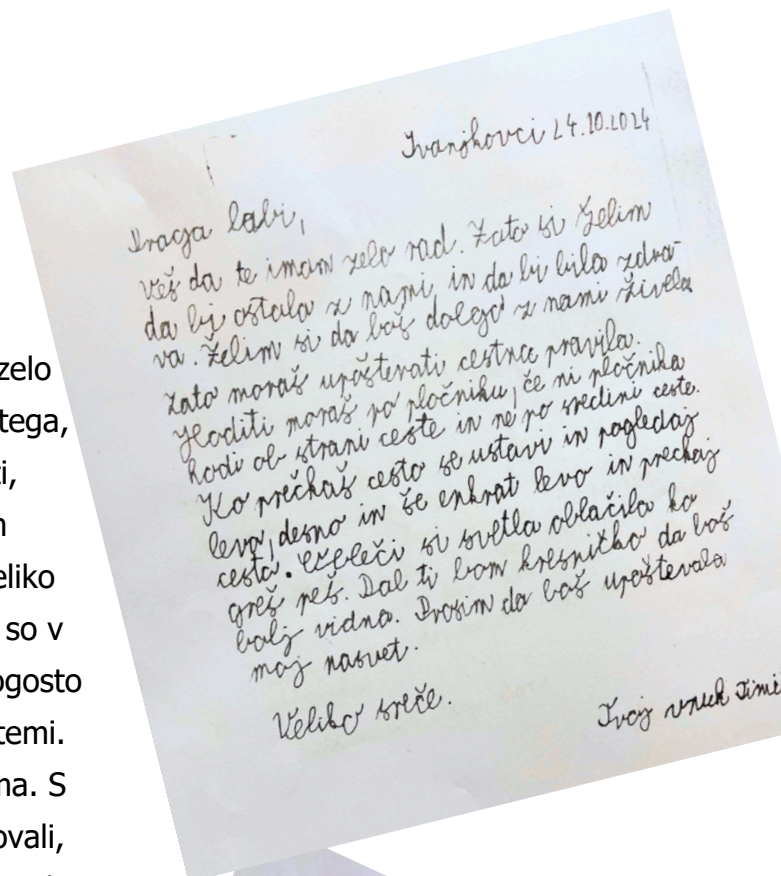 Ivanjkovci 24.10.2024
Draga babi,
veš da te imam zelo rad. Zato si želim
da bi ostala z nami in da bi bila zdra-
va. Želim si da boš dolgo z nami živela
zato moraš upoštevati cestne pravila.
Hoditi moraš po pločniku, če ni pločnika
hodi ob strani ceste in ne po sredini ceste.
Ko prečkaš cesto se ustavi in pogledaj
levo, desno in še enkrat levo in prečkaj
cesto. Obleči si svetla oblačila ko
greš peš. Dal ti bom kresničko da boš
bolj vidna. Prosim da boš upoštevala
moj nasvet.
Veliko sreče.
Tvoj vnuk
zelo
tega,
ti,
eliko
so v
ogosto
temi.
ma. S
ovali,